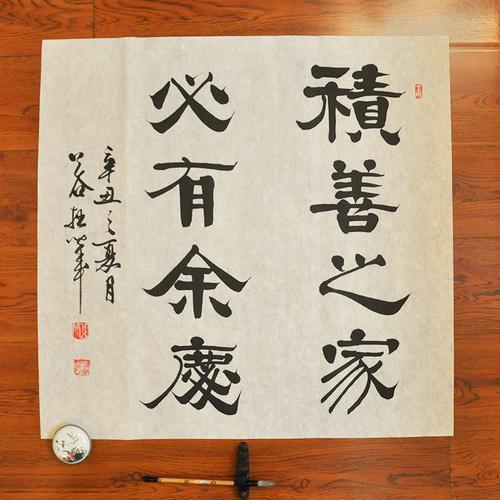 積善之家
必有余慶
辛丑之夏月